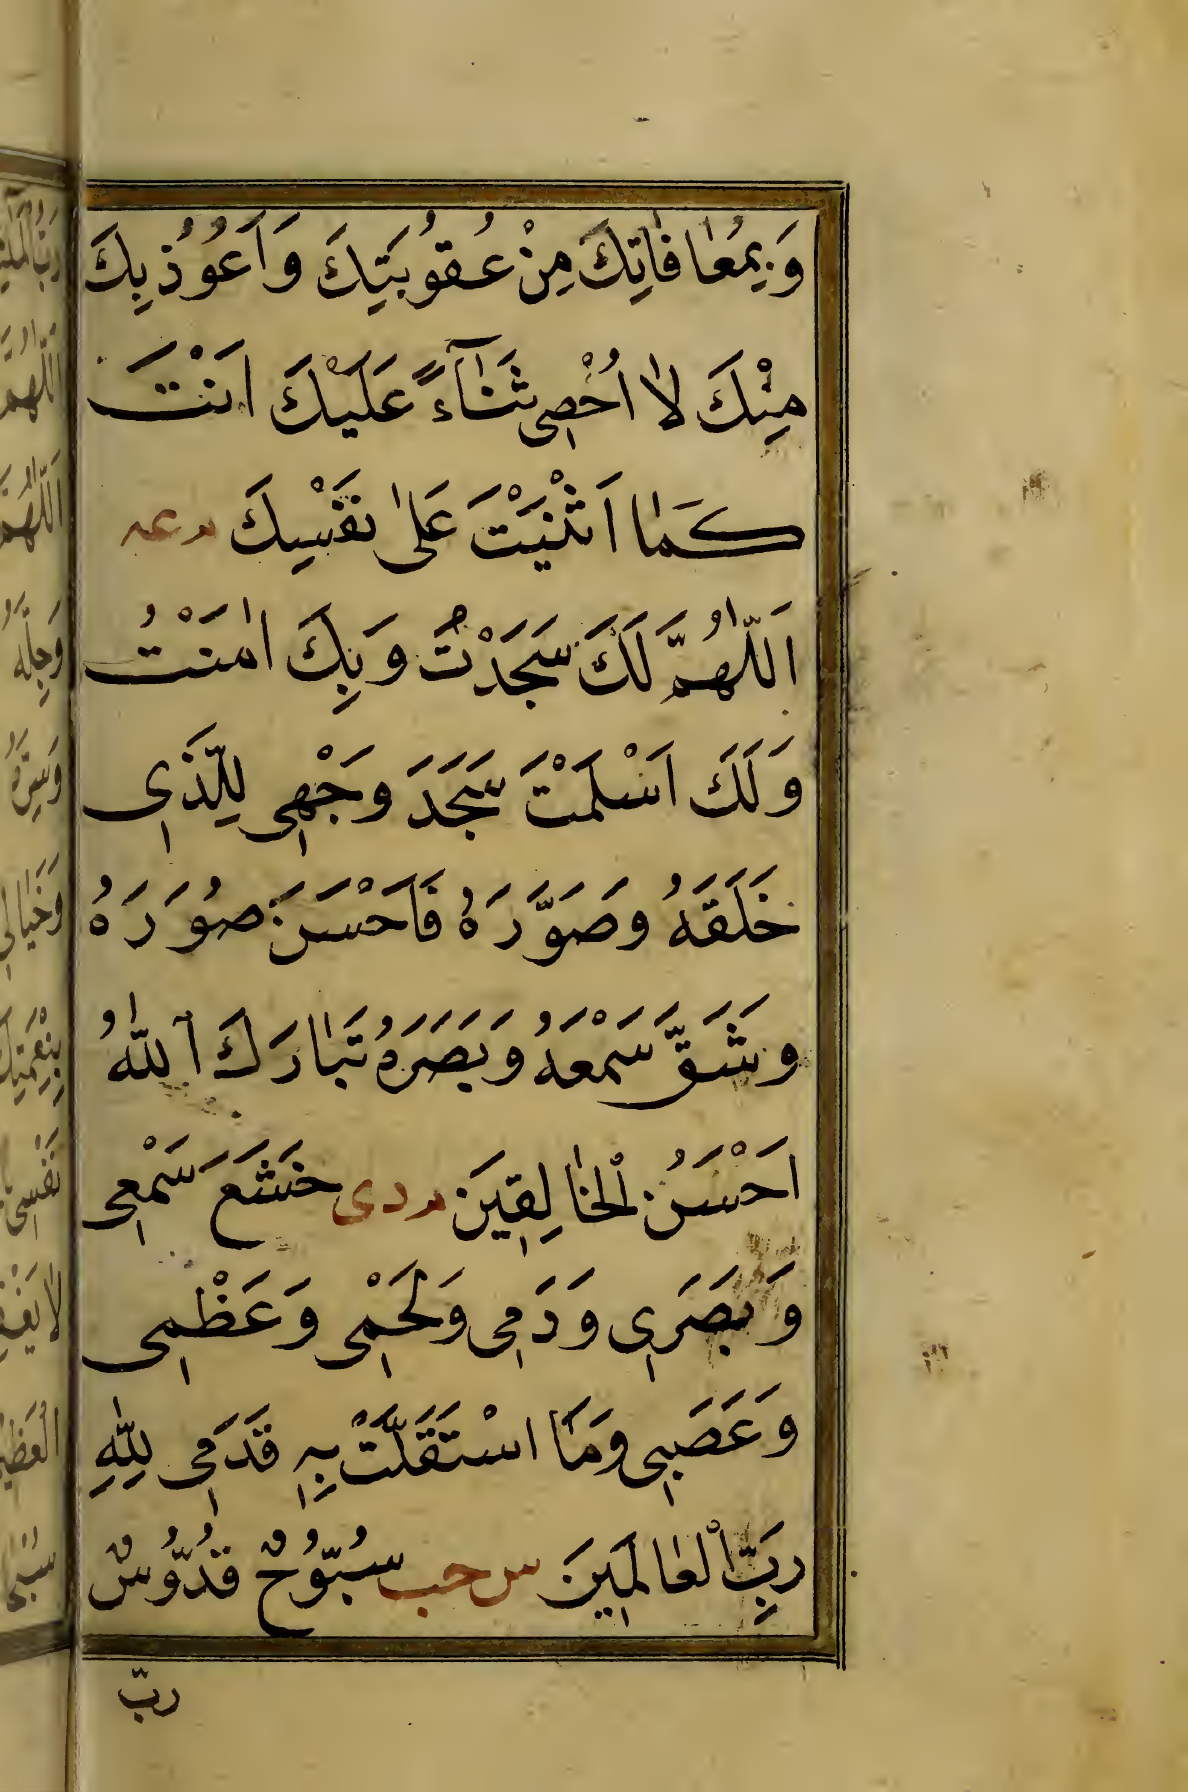 وَبِمُعَافَاتِكَ مِنْ عُقُوبَتِكَ وَاَعُوذُ بِكَ
مِنْكَ لَا اُحْصِى ثَنَآءً عَلَيْكَ اَنْتَ
كَمَا اَثْنَيْتَ عَلٰى نَفْسِكَ م عه
اَللّٰهُمَّ لَكَ سَجَدْتُ وَبِكَ اٰمَنْتُ
وَلَكَ اَسْلَمْتَ سَجَدَ وَجْهِى لِلَّذِى
خَلَقَهُ وَصَوَّرَهُ فَاَحْسَنَ صُوَرَهُ
وَشَقَّ سَمْعَهُ وَبَصَرَهُ تَبَارَكَ اللّٰهُ
اَحْسَنُ الْخَالِقِينَ م د ى خَشَعَ سَمْعِى
وَبَصَرِى وَدَمِى وَلَحْمِى وَعَظْمِى
وَعَصَبِى وَمَا اسْتَقَلَّتْ بِهِ قَدَمِى لِلّٰهِ
رَبِّ الْعَالَمِينَ س حب سُبُّوحٌ قُدُّوسٌ
ربّ